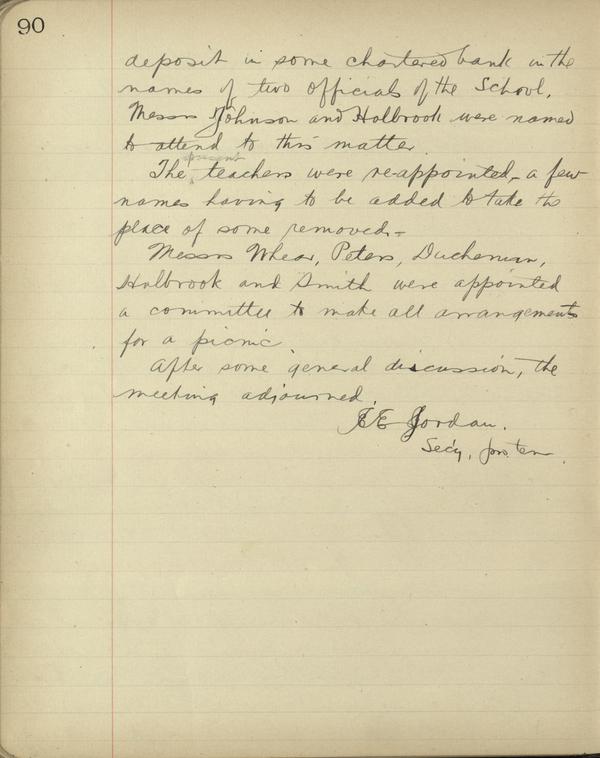 90
deposit in some chartered bank in the
names of two officials of the School.
Messrs Johnson and Holbrook were named
to attend to this matter.
present
The teachers were re-appointed - a few
names having to be added to take the
place of some removed -
Messrs Whear, Peters, Duchemin,
Holbrook and Smith were appointed
a committee to make all arrangements
for a picnic
After some general discussion, the
meeting adjourned.
Jordan.
Secy, pro. tem.